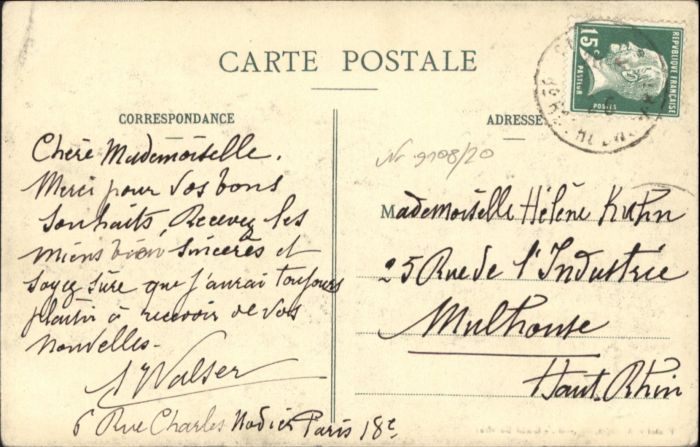 CARTE POSTALE
CORRESPONDANCE
Chère Mademoiselle.
Merci pour vos bons
souhaits, Recevez les
miens bien sincères et
soyez sûre que j'aurai toujours
plaisir à recevoir de vos
nouvelles.
Walser
6 Rue Charles Nodier Paris 18e
ADRESSE
Nr 9108/20
Mademoiselle Hélène Kuhn
25 Rue de l'Industrie
Mulhouse
Haut. Rhin
15c
REPUBLIQUE FRANÇAISE
PASTEUR
POSTES